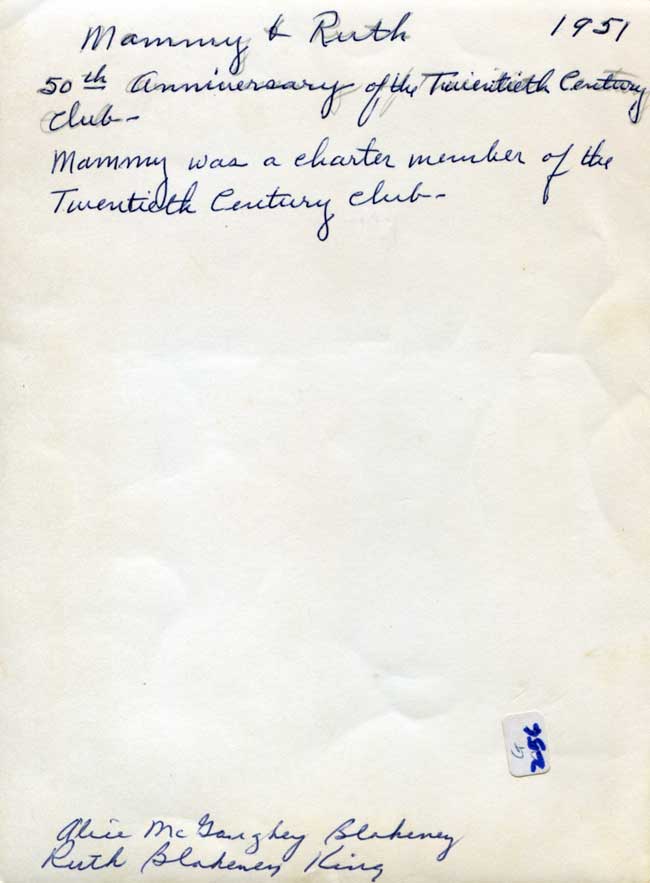 Mammy & Ruth 1951
50th Anniversary of the Twentieth Century
Club-
Mammy was a charter member of the
Twentieth Century Club-
G
256
Alice McGaughey Blakeney
Ruth Blakeney King